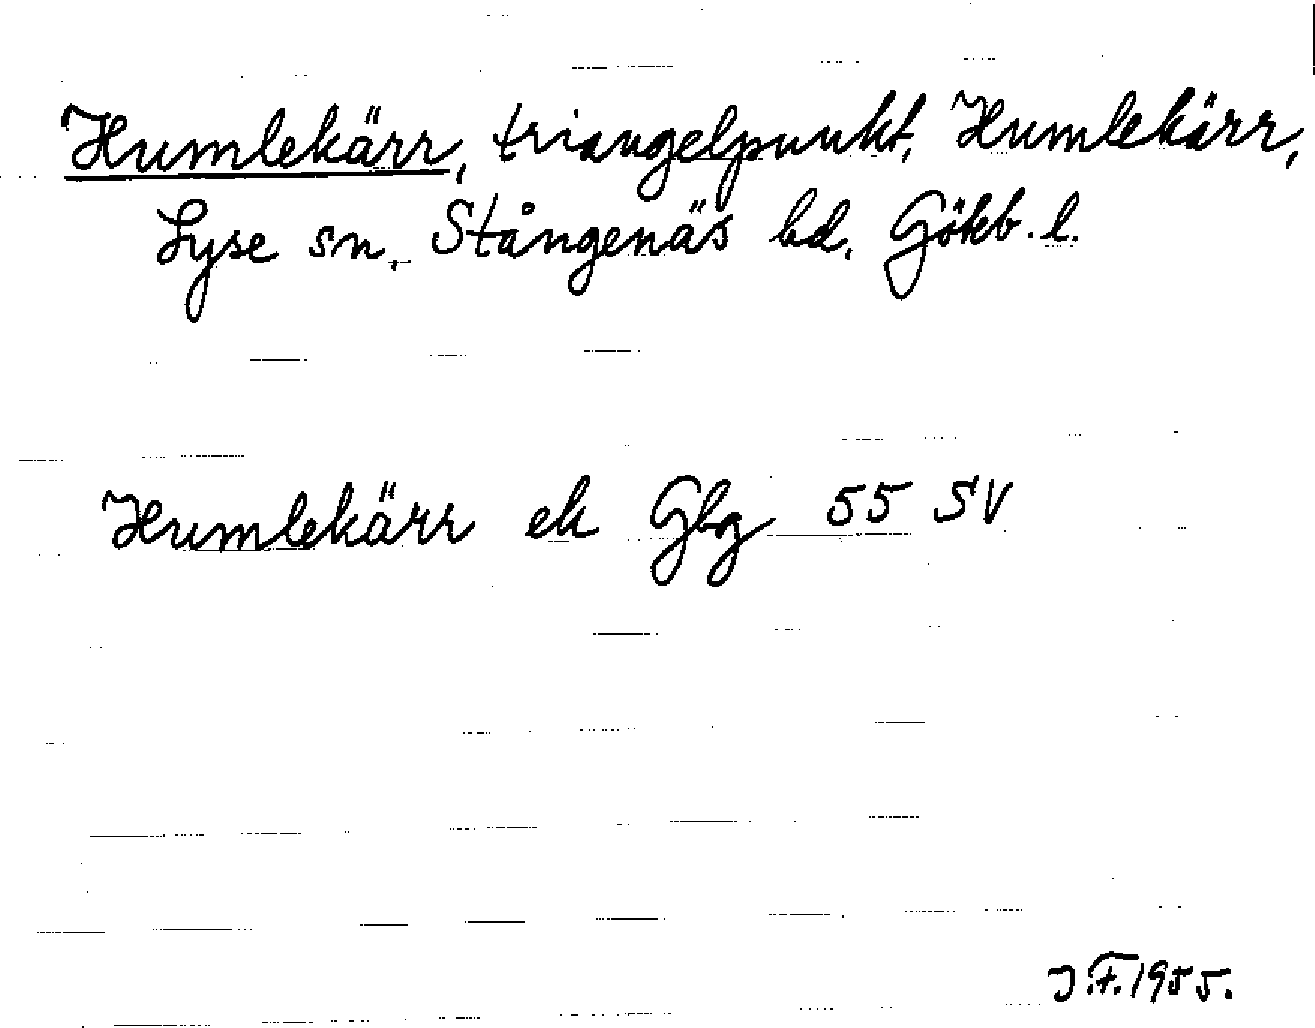 Humlekärr, triangelpunkt, Humlekärr,
Lyse sn, Stångenäs hd, Gökb. l.
Humlekärr ek Gbg 55 SV
J.F. 1955.